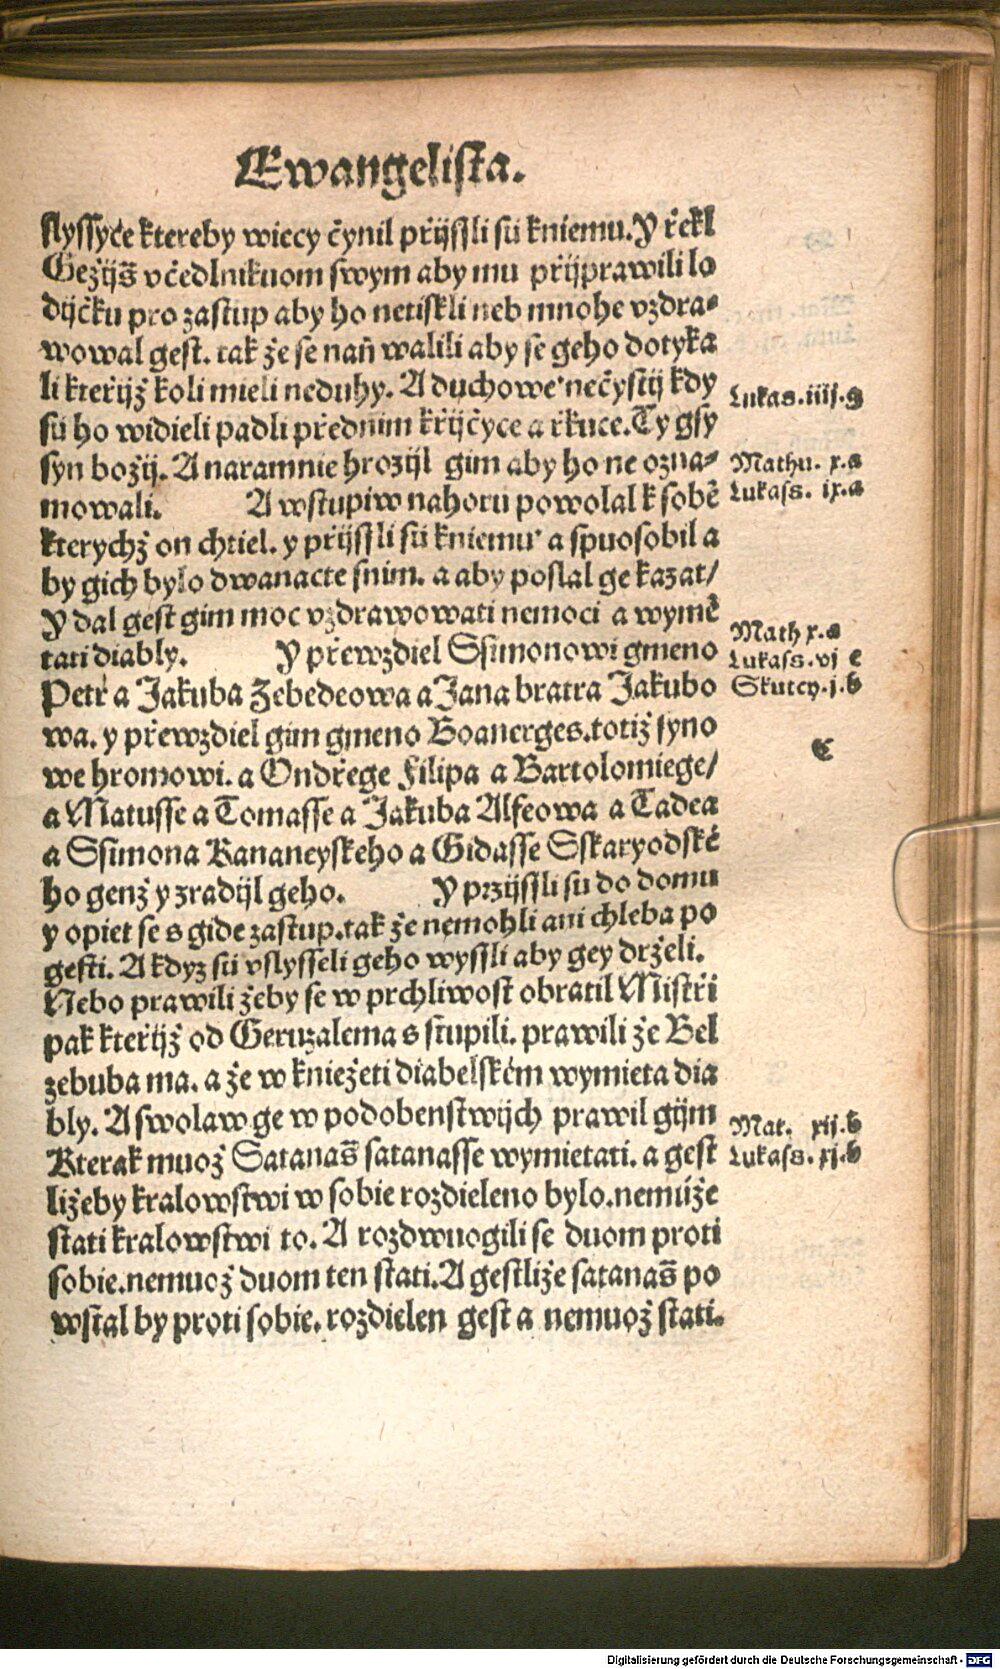 Ewangelista.
slyssyce ktereby wiecy čynil přijssli sú kniemu. Y řekl
Gežijs̃ včedlnikuom swym aby mu přijprawili lo
dijčku pro zastup aby ho netiskli neb mnohe vzdra-
wowal gest. tak že se nañ walili aby se geho dotyka
li kteřijž koli mieli neduhy. A duchowe nečystij kdy
sú ho widieli padli přednim křijčyce a řkuce. Ty gsy
syn božij. A naramnie hrozijl gim aby ho ne ozna-
mowali. A wstupiw nahoru powolal k sobě
kterychž on chtiel. y přijssli sú kniemu a spuosobil a
by gich bylo dwanacte snim. a aby poslal ge kazat/
Y dal gest gim moc vzdrawowati nemoci a wymě
tati diably. Y přewzdiel Ssimonowi gmeno
Petř a Jakuba Zebedeowa a Jana bratra Jakubo
wa. y přewzdiel gim gmeno Boanerges. totiž syno
we hromowi. a Ondřege Filipa a Bartolomiege/
a Matusse a Tomasse a Jakuba Alfeowa a Tadea
a Ssimona Kananeyskeho a Gidasse Sskaryodské
ho genž y zradijl geho. Y przijssli su do domu
y opiet se s gide zastup. tak že nemohli ani chleba po
gesti. A kdyz sú vslysseli geho wyssli aby gey drželi.
Nebo prawili žeby se w prchliwost obratil Mistři
pak kteřijž od Geruzalema s stupili. prawili že Bel
zebuba ma. a že w kniežeti diabelském wymieta dia
bly. A swolaw ge w podobenstwijch prawil gijm
Kterak muož Satanas̃ satanasse wymietati. a gest
ližeby kralowstwi w sobie rozdieleno bylo. nemúže
stati kralowstwi to. A rozdwuogili se duom proti
sobie. nemuož duom ten stati. A gestliže satanas̃ po
wstal by proti sobie. rozdielen gest a nemuož stati.
Lukas. iiij. g
Mathu. x. a
Lukass. ix. a
Math x. a
Lukass. vj c
Skutcy. j. b
C
Mat. xij. b
Lukass. xj. b
Digitalisierung gefördert durch die Deutsche Forschungsgemeinschaft - DFG